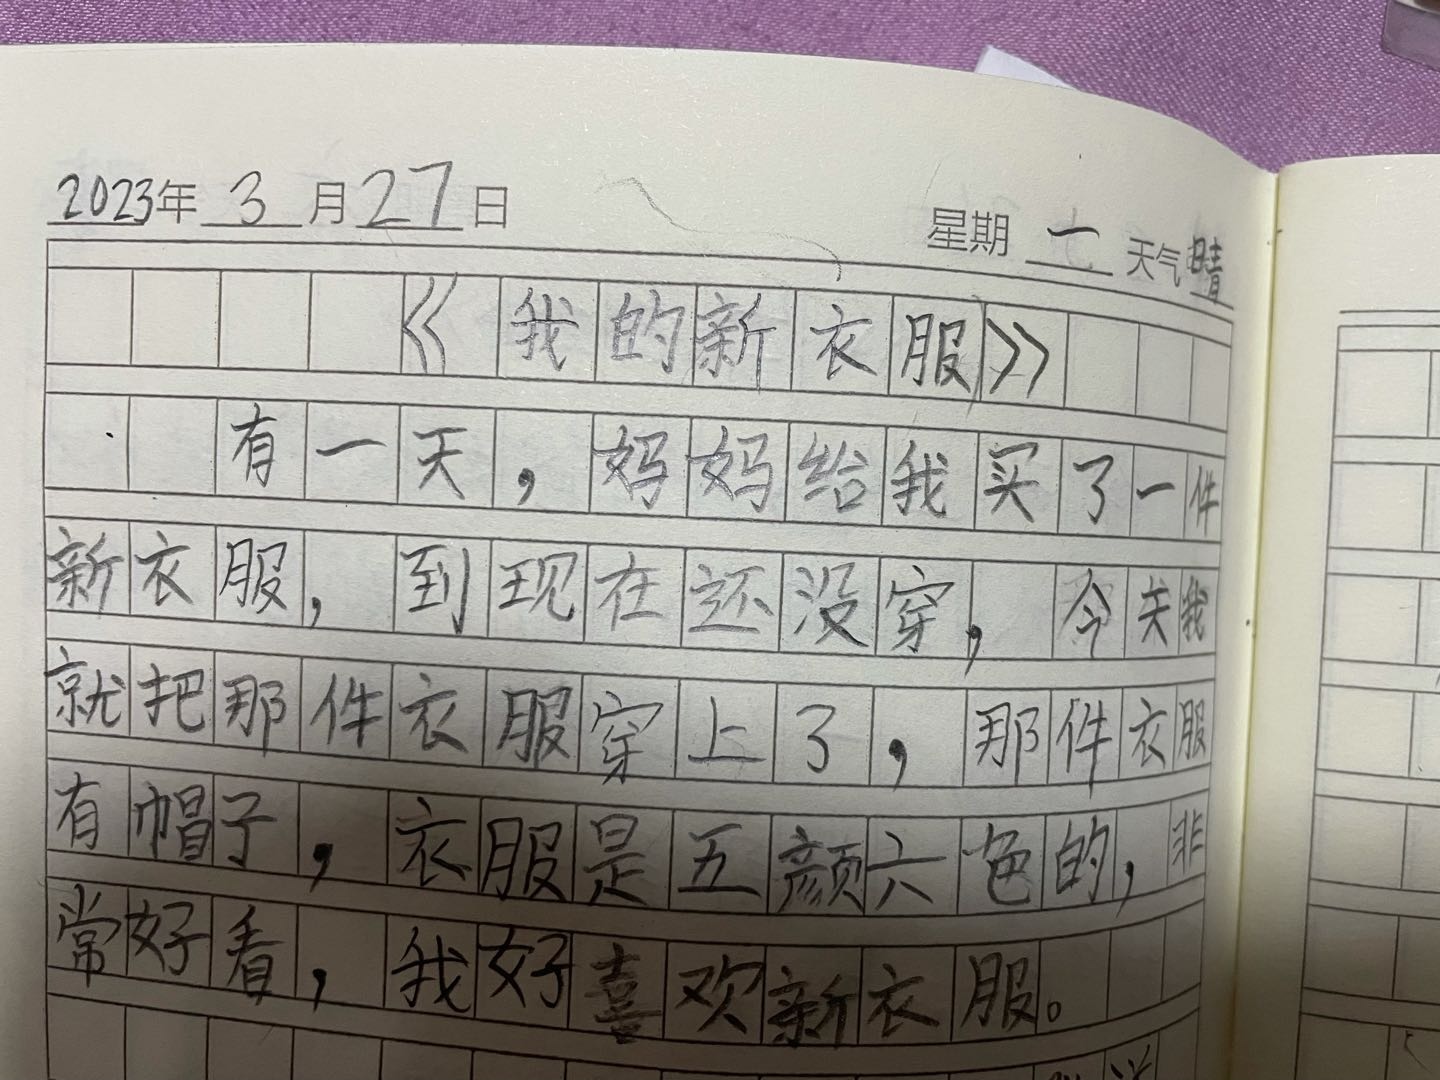 2023年 3 月 27 日 星期 一 天气 晴
《我的新衣服》
有一天，妈妈给我买了一件
新衣服，到现在还没穿，今天我
就把那件衣服穿上了，那件衣服
有帽子，衣服是五颜六色的，非
常好看，我好喜欢新衣服。